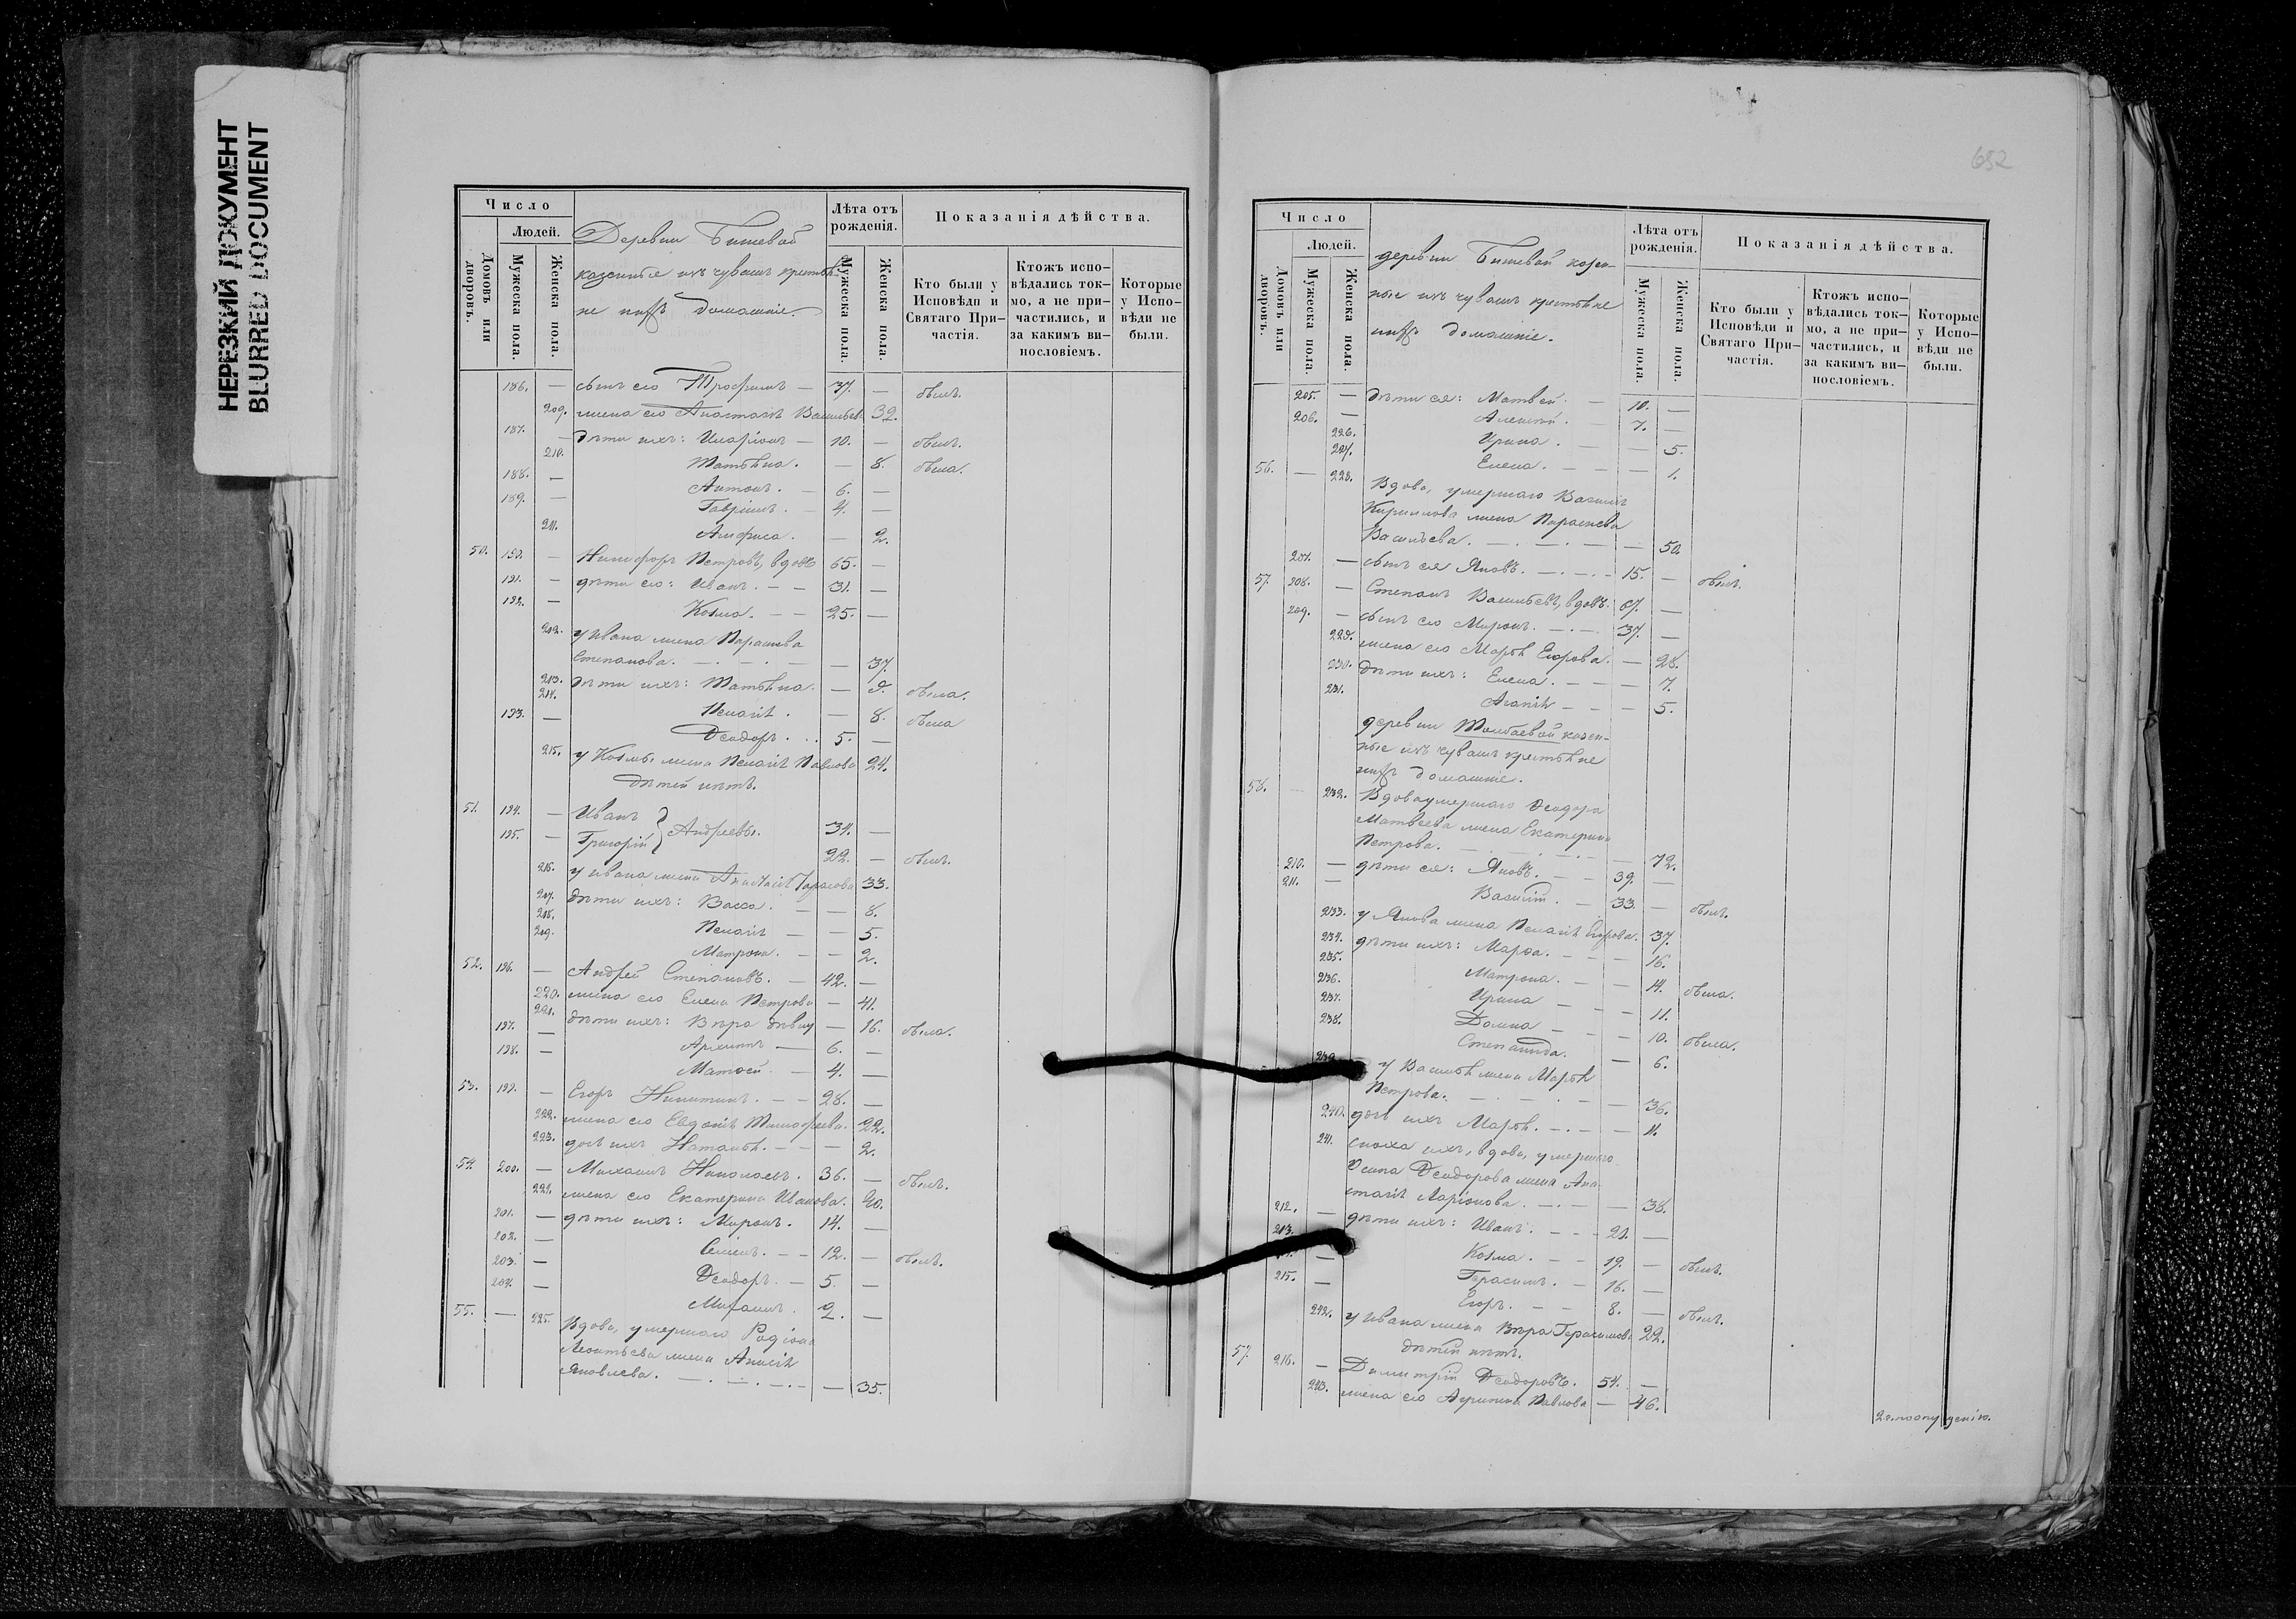 НЕРЕЗКИЙ ДОКУМЕНТ
BLURRED DOCUMENT
Число
Людей.
Домовъ или дворовъ.
Мужеска пола.
Женска пола.
Деревни Бишевой
казенные изъ чувашъ крестья
не и ихъ домашніе.
Лѣта отъ рожденія.
Мужеска пола.
Женска пола.
Показанія дѣйства.
Кто были у Исповѣди и Святаго Причастія.
Ктожъ исповѣдались токмо, а не причастились, и за какимъ винословіемъ.
Которые у Исповѣди не были.
186. — сынъ его Трофимъ — 37. — былъ.
209. жена его Анастасія Васильев. 32.
187. — дѣти ихъ: Иларіонъ — 10. — былъ.
210. Татьяна. — 8. была.
188. — Антонъ. — 6. —
189. — Гавріилъ. — 4. —
211. Анфиса. — 2.
50. 190. — Никифоръ Петровъ, вдовъ 65. —
191. — дѣти его: Иванъ. — — 31. —
192. — Козма. — — 25. —
212. у Ивана жена Параскева
Степанова. — . — . — — 37.
213. дѣти ихъ: Татьяна. — 9. была.
214. Пелагія. — 8. была
193. — Ѳеодоръ. . . 5. —
215. у Козмы жена Пелагія Павлова 24.
дѣтей нѣтъ.
51. 194. — Иванъ } Андреевы. 34. —
195. — Григорій 22. — былъ.
216. у Ивана жена Анастасія Тарасова 33.
217. дѣти ихъ: Васса. — — 8.
218. Пелагія — — 5.
219. Матрона. — — 2.
52. 196. — Андрей Степановъ. — 42. —
220. жена его Елена Петрова — 41.
221. дѣти ихъ: Вѣра дѣвиц — 16. была.
197. — Архиппъ — 6. —
198. — Матѳей — 4. —
53. 199. — Егоръ Никитинъ. — — 28. —
222. жена его Евдокія Тимофеева. 22.
223. дочь ихъ Наталья. — — — 2.
54. 200. — Михаилъ Николаевъ. 36. — былъ.
224. жена его Екатерина Иванова. 40.
201. — дѣти ихъ: Миронъ. 14. —
202. — Семенъ. — — 12. — былъ.
203. — Ѳеодоръ. — 5. —
204. — Михаилъ. 2. —
55. — 225. Вдова, умершаго Родіона
Леонтьева жена Анисія
Яковлева. — . — . — . — — 35.
652
Число
Людей.
Домовъ или дворовъ.
Мужеска пола.
Женска пола.
деревни Бишевой казен-
ные изъ чувашъ крестьяне
и ихъ домашніе.
Лѣта отъ рожденія.
Мужеска пола.
Женска пола.
Показанія дѣйства.
Кто были у Исповѣди и Святаго Причастія.
Ктожъ исповѣдались токмо, а не причастились, и за какимъ винословіемъ.
Которые у Исповѣди не были.
205. — дѣти ея: Матвей. — 10. —
206. — Алексій. — 7. —
226. Ирина. — — 5.
227. Елена. — — — 1.
56. — 228. Вдова, умершаго Василія
Кириллова жена Параскева
Васильева. — . — . — — 50.
207. — сынъ ея Яковъ. — . — . — 15. — былъ.
57. 208. — Степанъ Васильевъ, вдовъ. 67. —
209. — сынъ его Миронъ. — . — 37. —
229. жена его Марья Егорова. — 28.
230. дѣти ихъ: Елена. — — — 7.
231. Агапія — — — 5.
деревни Толбаевой казен-
ные изъ чувашъ крестьяне
и ихъ домашніе.
58. — 232. Вдова умершаго Ѳеодора
Матвеева жена Екатерина
Петрова. — . — . — . — — 72.
210. — дѣти ея: Яковъ. — — 39. —
211. — Василій. — 33. — былъ.
233. у Якова жена Пелагія Егорова. 37.
234. дѣти ихъ: Марѳа. — — — 16.
235. Матрона. — — 14. была.
236. Ирина — — 11.
237. Домна — — 10. была.
238. Степанида. — 6.
239. у Василья жена Марья
Петрова. — . — . — — 36.
240. дочь ихъ Марья. — . — — 11.
241. сноха ихъ, вдова, умершаго
Осипа Ѳеодорова жена Ана-
стасія Ларіонова. — . — — 38.
212. — дѣти ихъ: Иванъ. — — — 21. —
213. — Козма. — — 19. — былъ.
— Герасимъ. — 16. —
215. — Егоръ. — — 8. — былъ.
242. у Ивана жена Вѣра Герасимова 22.
дѣтей нѣтъ.
57. 216. — Димитрій Ѳеодоровъ. 54. —
243. жена его Агрипина Павлова — 46.